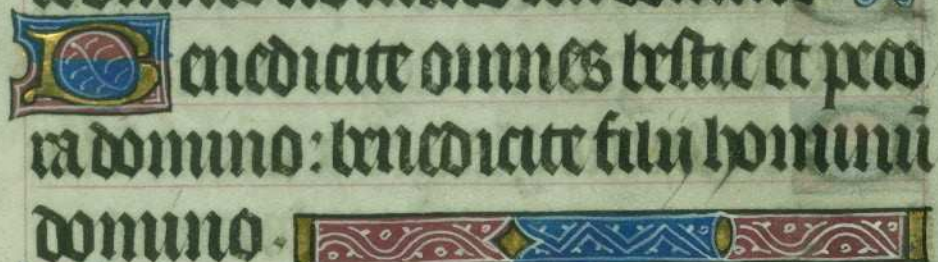 Benedicite omnes bestie et peco
ra domino: benedicite filij hominū
domino.